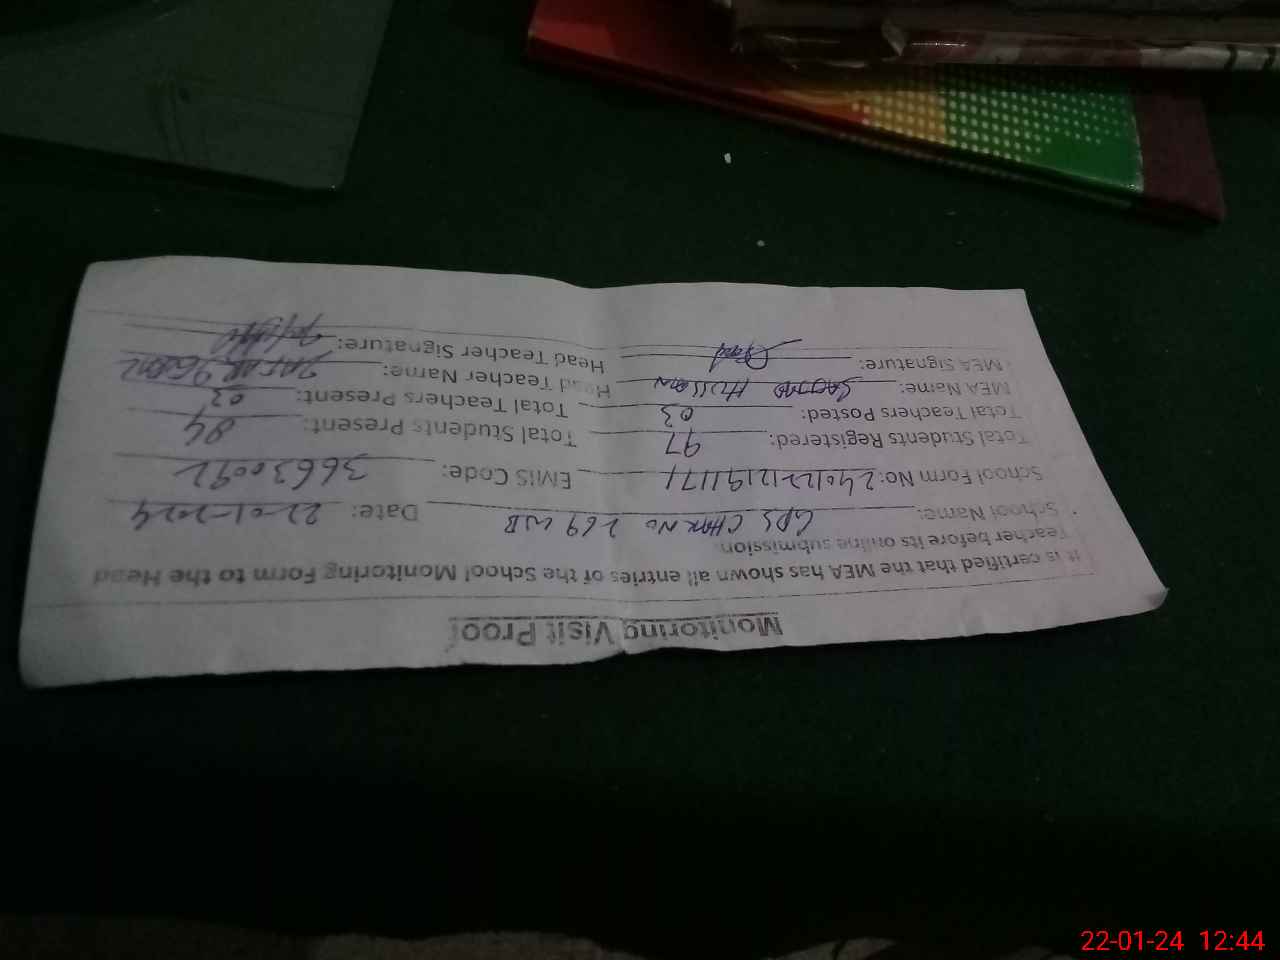 Monitoring Visit Proof
It is certified that the MEA has shown all entries of the School Monitoring Form to the Head
Teacher before its online submission.
School Name: GPS CHAK No 269 WB Date: 22-01-2024
School Form No: EMIS Code: 36630092
Total Students Registered: 97 Total Students Present: 84
Total Teachers Posted: 03 Total Teachers Present: 03
MEA Name: Hussain Head Teacher Name: ZAFAR
MEA Signature: Head Teacher Signature:
22-01-24 12:44